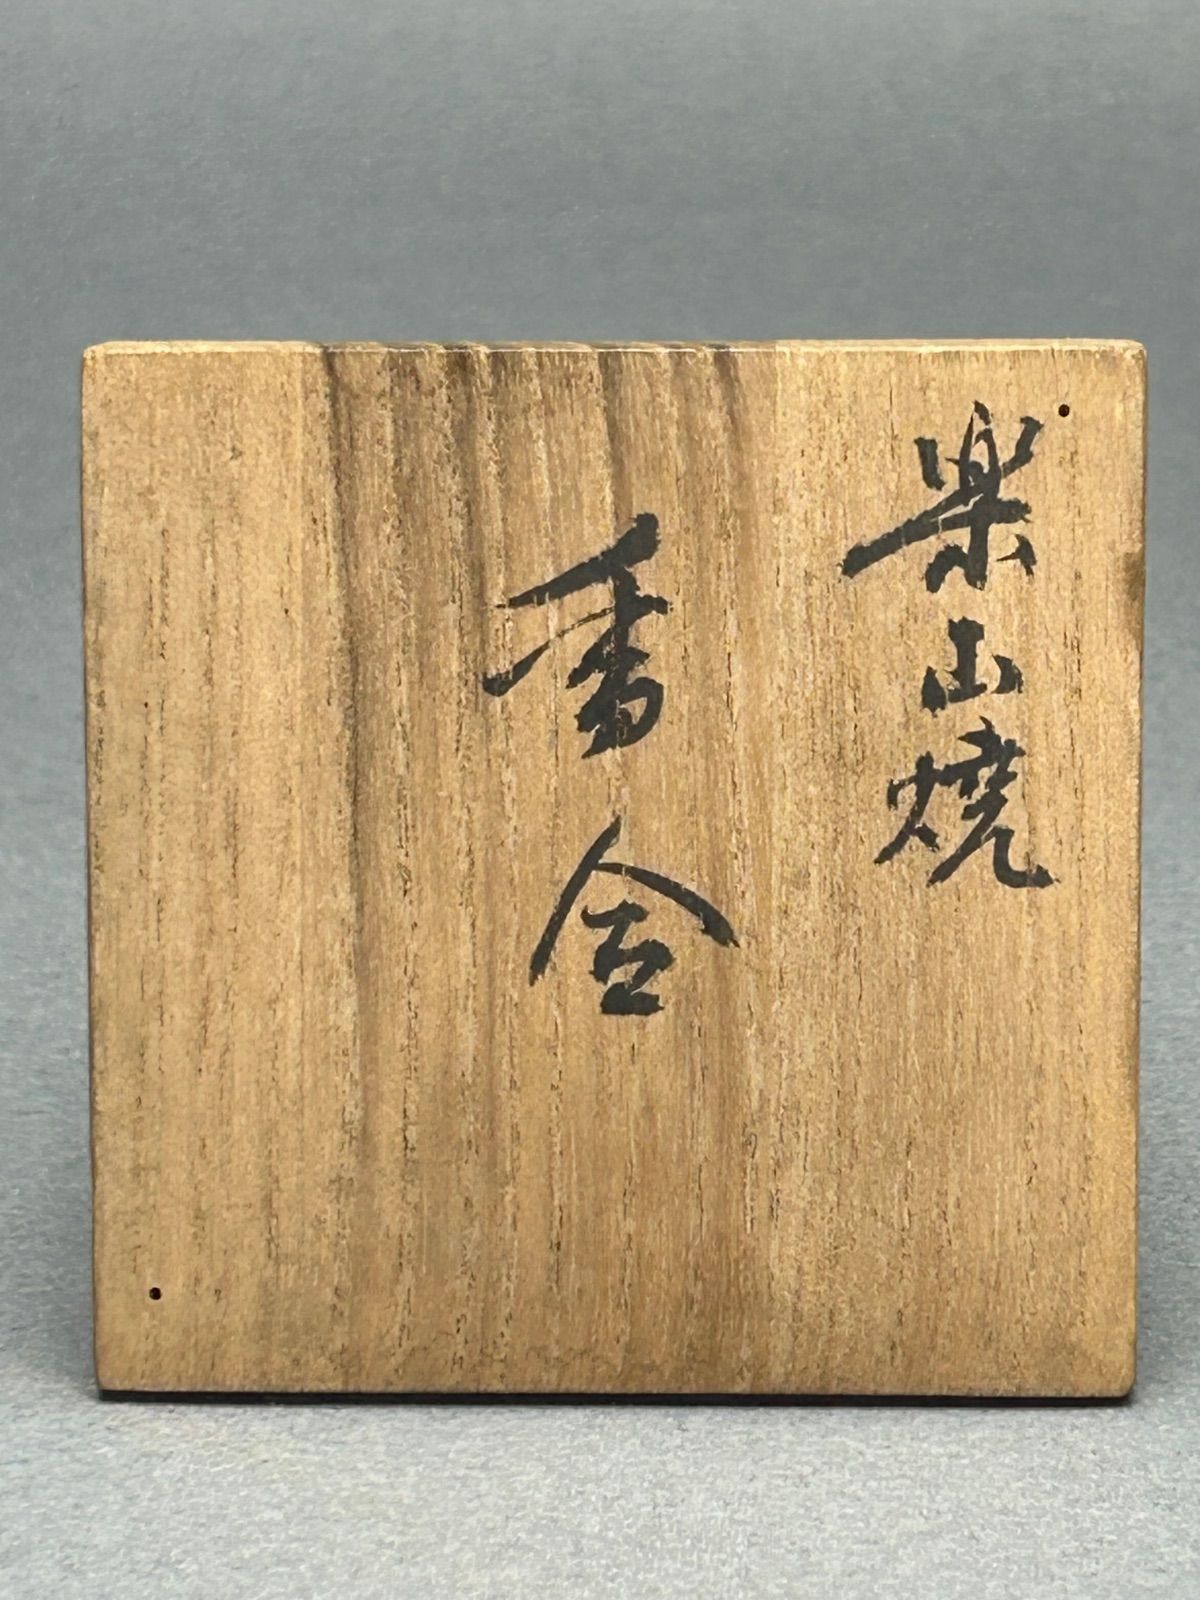 楽山焼
香合